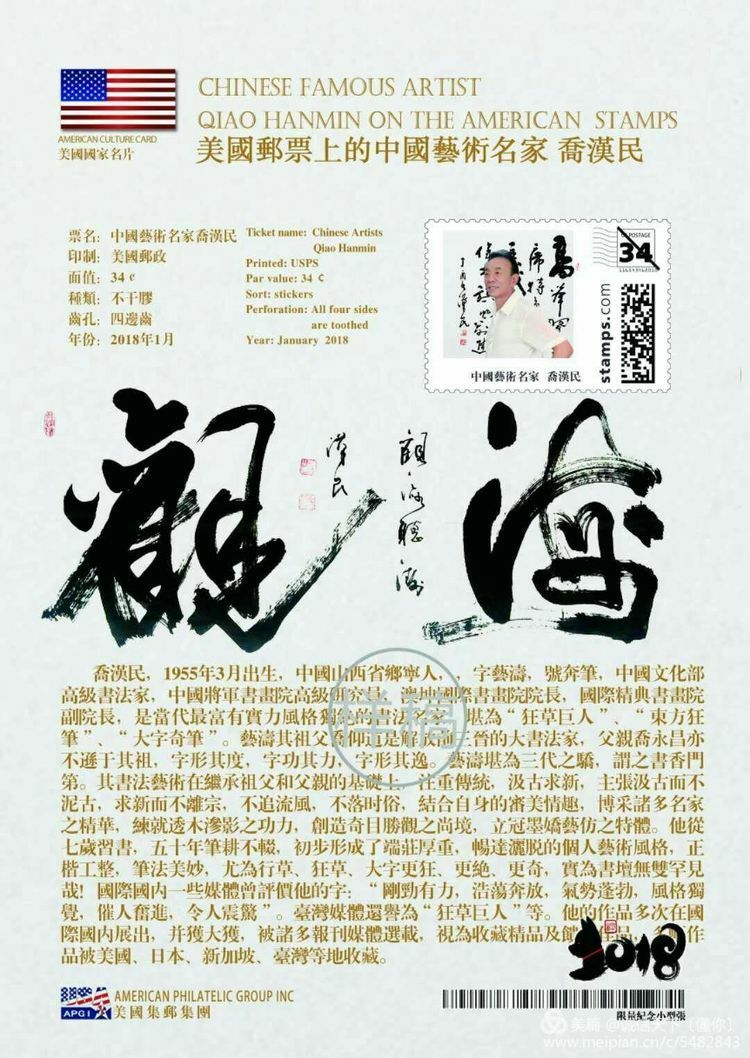 CHINESE FAMOUS ARTIST
QIAO HANMIN ON THE AMERICAN STAMPS
美國郵票上的中國藝術名家 喬漢民
AMERICAN CULTURE CARD
美國國家名片
票名: 中國藝術名家喬漢民
印制: 美國郵政
面值: 34¢
種類: 不干膠
齒孔: 四邊齒
年份: 2018年1月
Ticket name: Chinese Artists
Qiao Hanmin
Printed: USPS
Par value: 34 ¢
Sort: stickers
Perforation: All four sides
are toothed
Year: January 2018
US POSTAGE
34
stamps.com
中國藝術名家 喬漢民
觀海
觀海聽濤
漢民
喬漢民，1955年3月出生，中國山西省鄉寧人，字藝濤，號奔筆，中國文化部
高級書法家，中國將軍書畫院高級研究員，國際書畫院院長，國際精典書畫院
副院長，是當代最富有實力風格獨的書法名家，堪為“狂草巨人”、“東方狂
筆”、“大字奇筆”。藝濤其祖父喬仰三晉的大書法家，父親喬永昌亦
不遜于其祖，字形其度，字功其力，字形其逸。藝濤堪為三代之驕，謂之書香門
第。其書法藝術在繼承祖父和父親的基礎上，注重傳統，汲古求新，主張汲古而不
泥古，求新而不離宗，不追流風，不落时俗，結合自身的審美情趣，博采諸多名家
之精華，練就透木滲影之功力，創造奇目勝觀之尚境，立冠墨嬌藝仿之特體。他從
七歲習書，五十年筆耕不輟，初步形成了端莊厚重，暢達灑脱的個人藝術風格，正
楷工整，筆法美妙，尤為行草、狂草、大字更狂、更絶、更奇，實為書壇無雙罕見
哉！國際國内一些媒體曾評價他的字：“剛勁有力，浩蕩奔放，氣勢蓬勃，風格獨
覺，催人奮進，令人震驚”。臺灣媒體還譽為“狂草巨人”等。他的作品多次在國
際國内展出，并獲大獲，被諸多報刊媒體選載，視為收藏精品及作品，作
品被美國、日本、新加坡、臺灣等地收藏。
样稿
2018
APGI
AMERICAN PHILATELIC GROUP INC
美國集郵集團
限量紀念小型張
美篇 @诚信天下〔僅你〕
www.meipian.cn/c/5482843